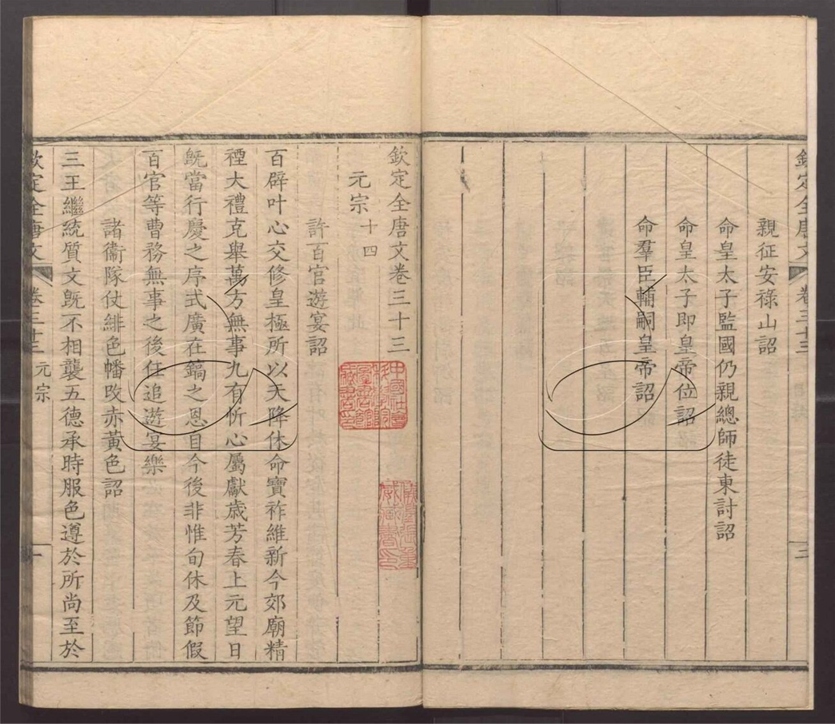 欽定全唐文 卷三十三 三
親征安祿山詔
命皇太子監國仍親總師徒東討詔
命皇太子即皇帝位詔
命羣臣輔嗣皇帝詔
欽定全唐文卷三十三
元宗 十四
許百官遊宴詔
百辟叶心交修皇極所以天降休命寶祚維新今郊廟精
禋大禮克舉萬方無事九有忻心屬獻歲芳春上元望日
旣當行慶之序式廣在鎬之恩自今後非惟旬休及節假
百官等曹務無事之後任追遊宴樂
諸衞隊仗緋色幡改赤黃色詔
三王繼統質文旣不相襲五德承時服色遵於所尚至於
欽定全唐文 卷三十三 元宗 一